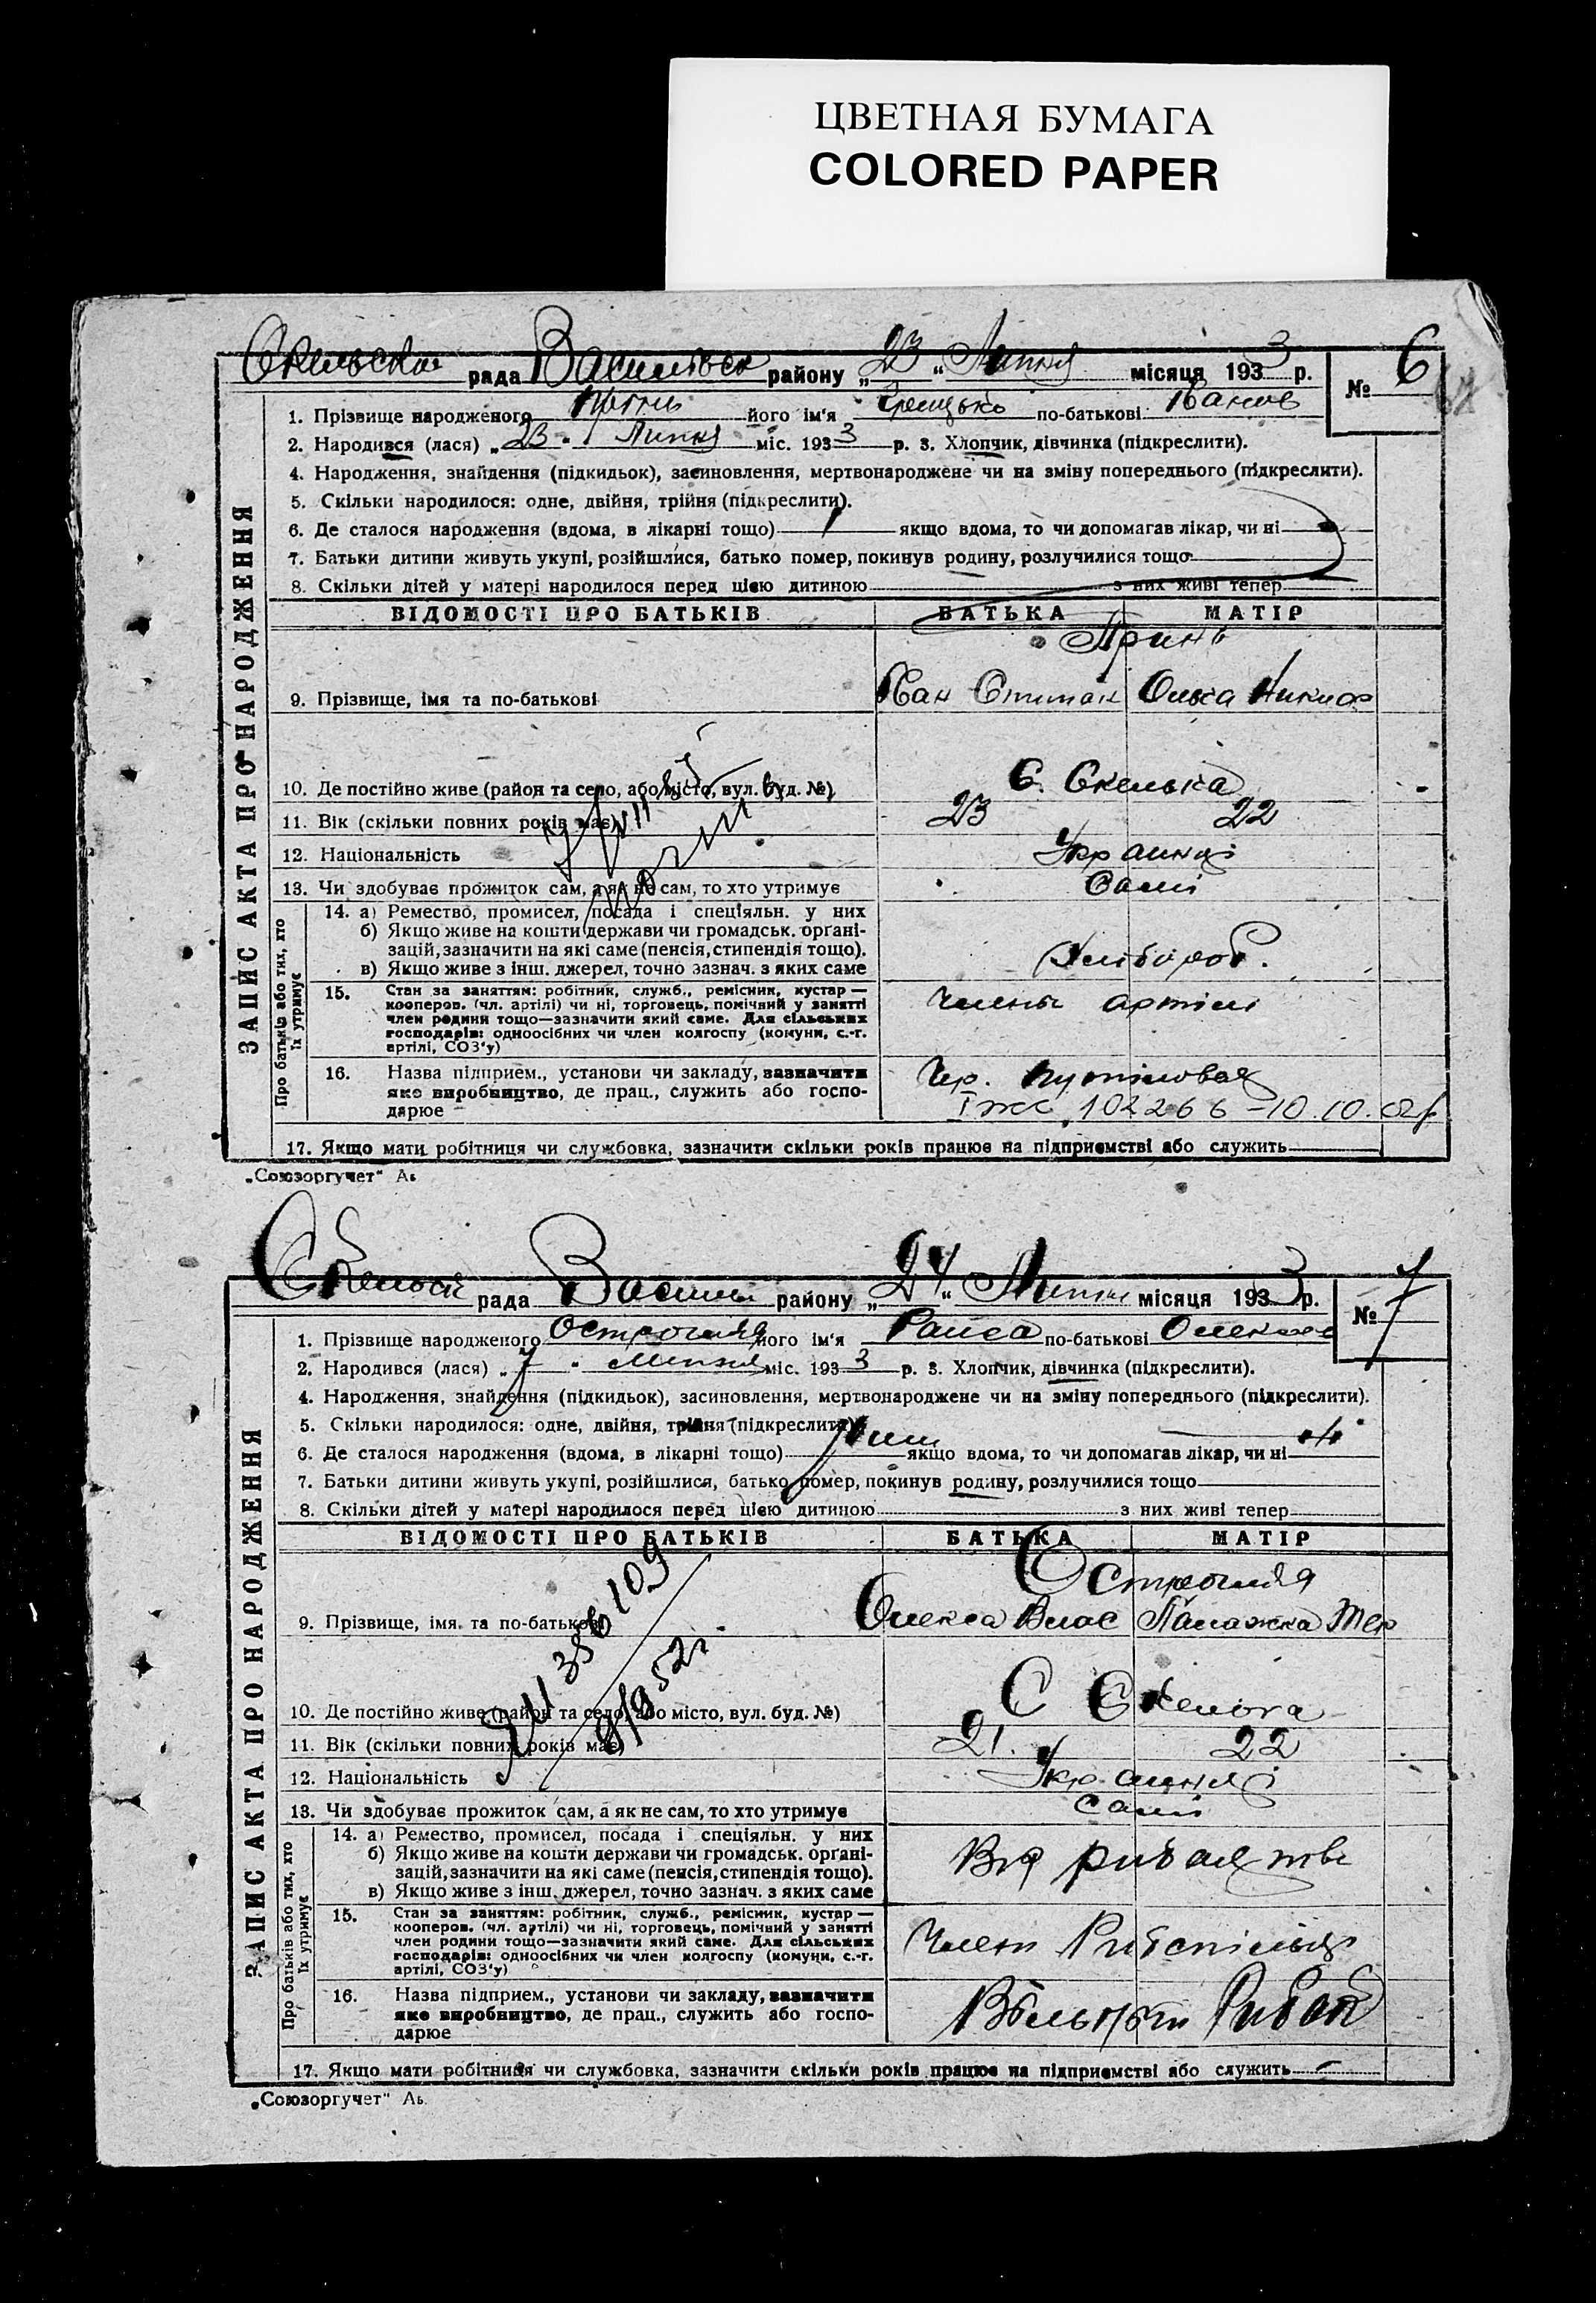 ЦВЕТНАЯ БУМАГА
COLORED PAPER
рада Васильевск району „23“ Липня місяця 1933 р. № 6
1. Прізвище народженого його ім'я Грицько по-батькові Іванов
2. Народився (лася) „23“ Липня міс. 1933 р. 3. Хлопчик, дівчинка (підкреслити).
4. Народження, знайдення (підкидьок), засиновлення, мертвонароджене чи на зміну попереднього (підкреслити).
5. Скільки народилося: одне, двійня, трійня (підкреслити).
6. Де сталося народження (вдома, в лікарні тощо) якщо вдома, то чи допомагав лікар, чи ні
7. Батьки дитини живуть укупі, розійшлися, батько помер, покинув родину, розлучилися тощо
8. Скільки дітей у матері народилося перед цією дитиною з них живі тепер
ЗАПИС АКТА ПРО НАРОДЖЕННЯ
ВІДОМОСТІ ПРО БАТЬКІВ БАТЬКА МАТІР
9. Прізвище, імя та по-батькові Іван Степан Олька Никиф
10. Де постійно живе (район та село, або місто, вул. буд. №) С. Скелька
11. Вік (скільки повних років має) 23 22
12. Національність Українці
13. Чи здобуває прожиток сам, а як не сам, то хто утримує Самі
Про батьків або тих, хто їх утримує
14. а) Ремество, промисел, посада і спеціяльн. у них
б) Якщо живе на кошти держави чи громадськ. органі-
зацій, зазначити на які саме (пенсія, стипендія тощо).
в) Якщо живе з інш. джерел, точно зазнач. з яких саме
15. Стан за заняттям: робітник, служб., ремісник, кустар —
кооперов. (чл. артілі) чи ні, торговець, помічний у занятті
член родини тощо—зазначити який саме. Для сільських
господарів: одноосібних чи член колгоспу (комуни, с.-г.
артілі, СОЗ'у)
Члены артілі
16. Назва підприєм., установи чи закладу, зазначити
яке виробництво, де прац., служить або госпо-
дарює
102266 – 10.10.
17. Якщо мати робітниця чи службовка, зазначити скільки років працює на підприємстві або служить
„Союзоргучет“
рада Васили району „24“ Липня місяця 1933 р. № 7
1. Прізвище народженого його ім'я Раиса по-батькові Олекс
2. Народився (лася) „7“ Липня міс. 1933 р. 3. Хлопчик, дівчинка (підкреслити).
4. Народження, знайдення (підкидьок), засиновлення, мертвонароджене чи на зміну попереднього (підкреслити).
5. Скільки народилося: одне, двійня, трійня (підкреслити)
6. Де сталося народження (вдома, в лікарні тощо) якщо вдома, то чи допомагав лікар, чи ні
7. Батьки дитини живуть укупі, розійшлися, батько помер, покинув родину, розлучилися тощо
8. Скільки дітей у матері народилося перед цією дитиною з них живі тепер
ЗАПИС АКТА ПРО НАРОДЖЕННЯ
ВІДОМОСТІ ПРО БАТЬКІВ БАТЬКА МАТІР
9. Прізвище, імя та по-батькові Олекса Влас Палажка
356109
10. Де постійно живе (район та село, або місто, вул. буд. №) С Скелька
11. Вік (скільки повних років має) 21. 22
12. Національність Українці
13. Чи здобуває прожиток сам, а як не сам, то хто утримує самі
Про батьків або тих, хто їх утримує
14. а) Ремество, промисел, посада і спеціяльн. у них
б) Якщо живе на кошти держави чи громадськ. органі-
зацій, зазначити на які саме (пенсія, стипендія тощо).
в) Якщо живе з інш. джерел, точно зазнач. з яких саме
Від
15. Стан за заняттям: робітник, служб., ремісник, кустар —
кооперов. (чл. артілі) чи ні, торговець, помічний у занятті
член родини тощо—зазначити який саме. Для сільських
господарів: одноосібних чи член колгоспу (комуни, с.-г.
артілі, СОЗ'у)
Член
16. Назва підприєм., установи чи закладу, зазначити
яке виробництво, де прац., служить або госпо-
дарює
17. Якщо мати робітниця чи службовка, зазначити скільки років працює на підприємстві або служить
„Союзоргучет“